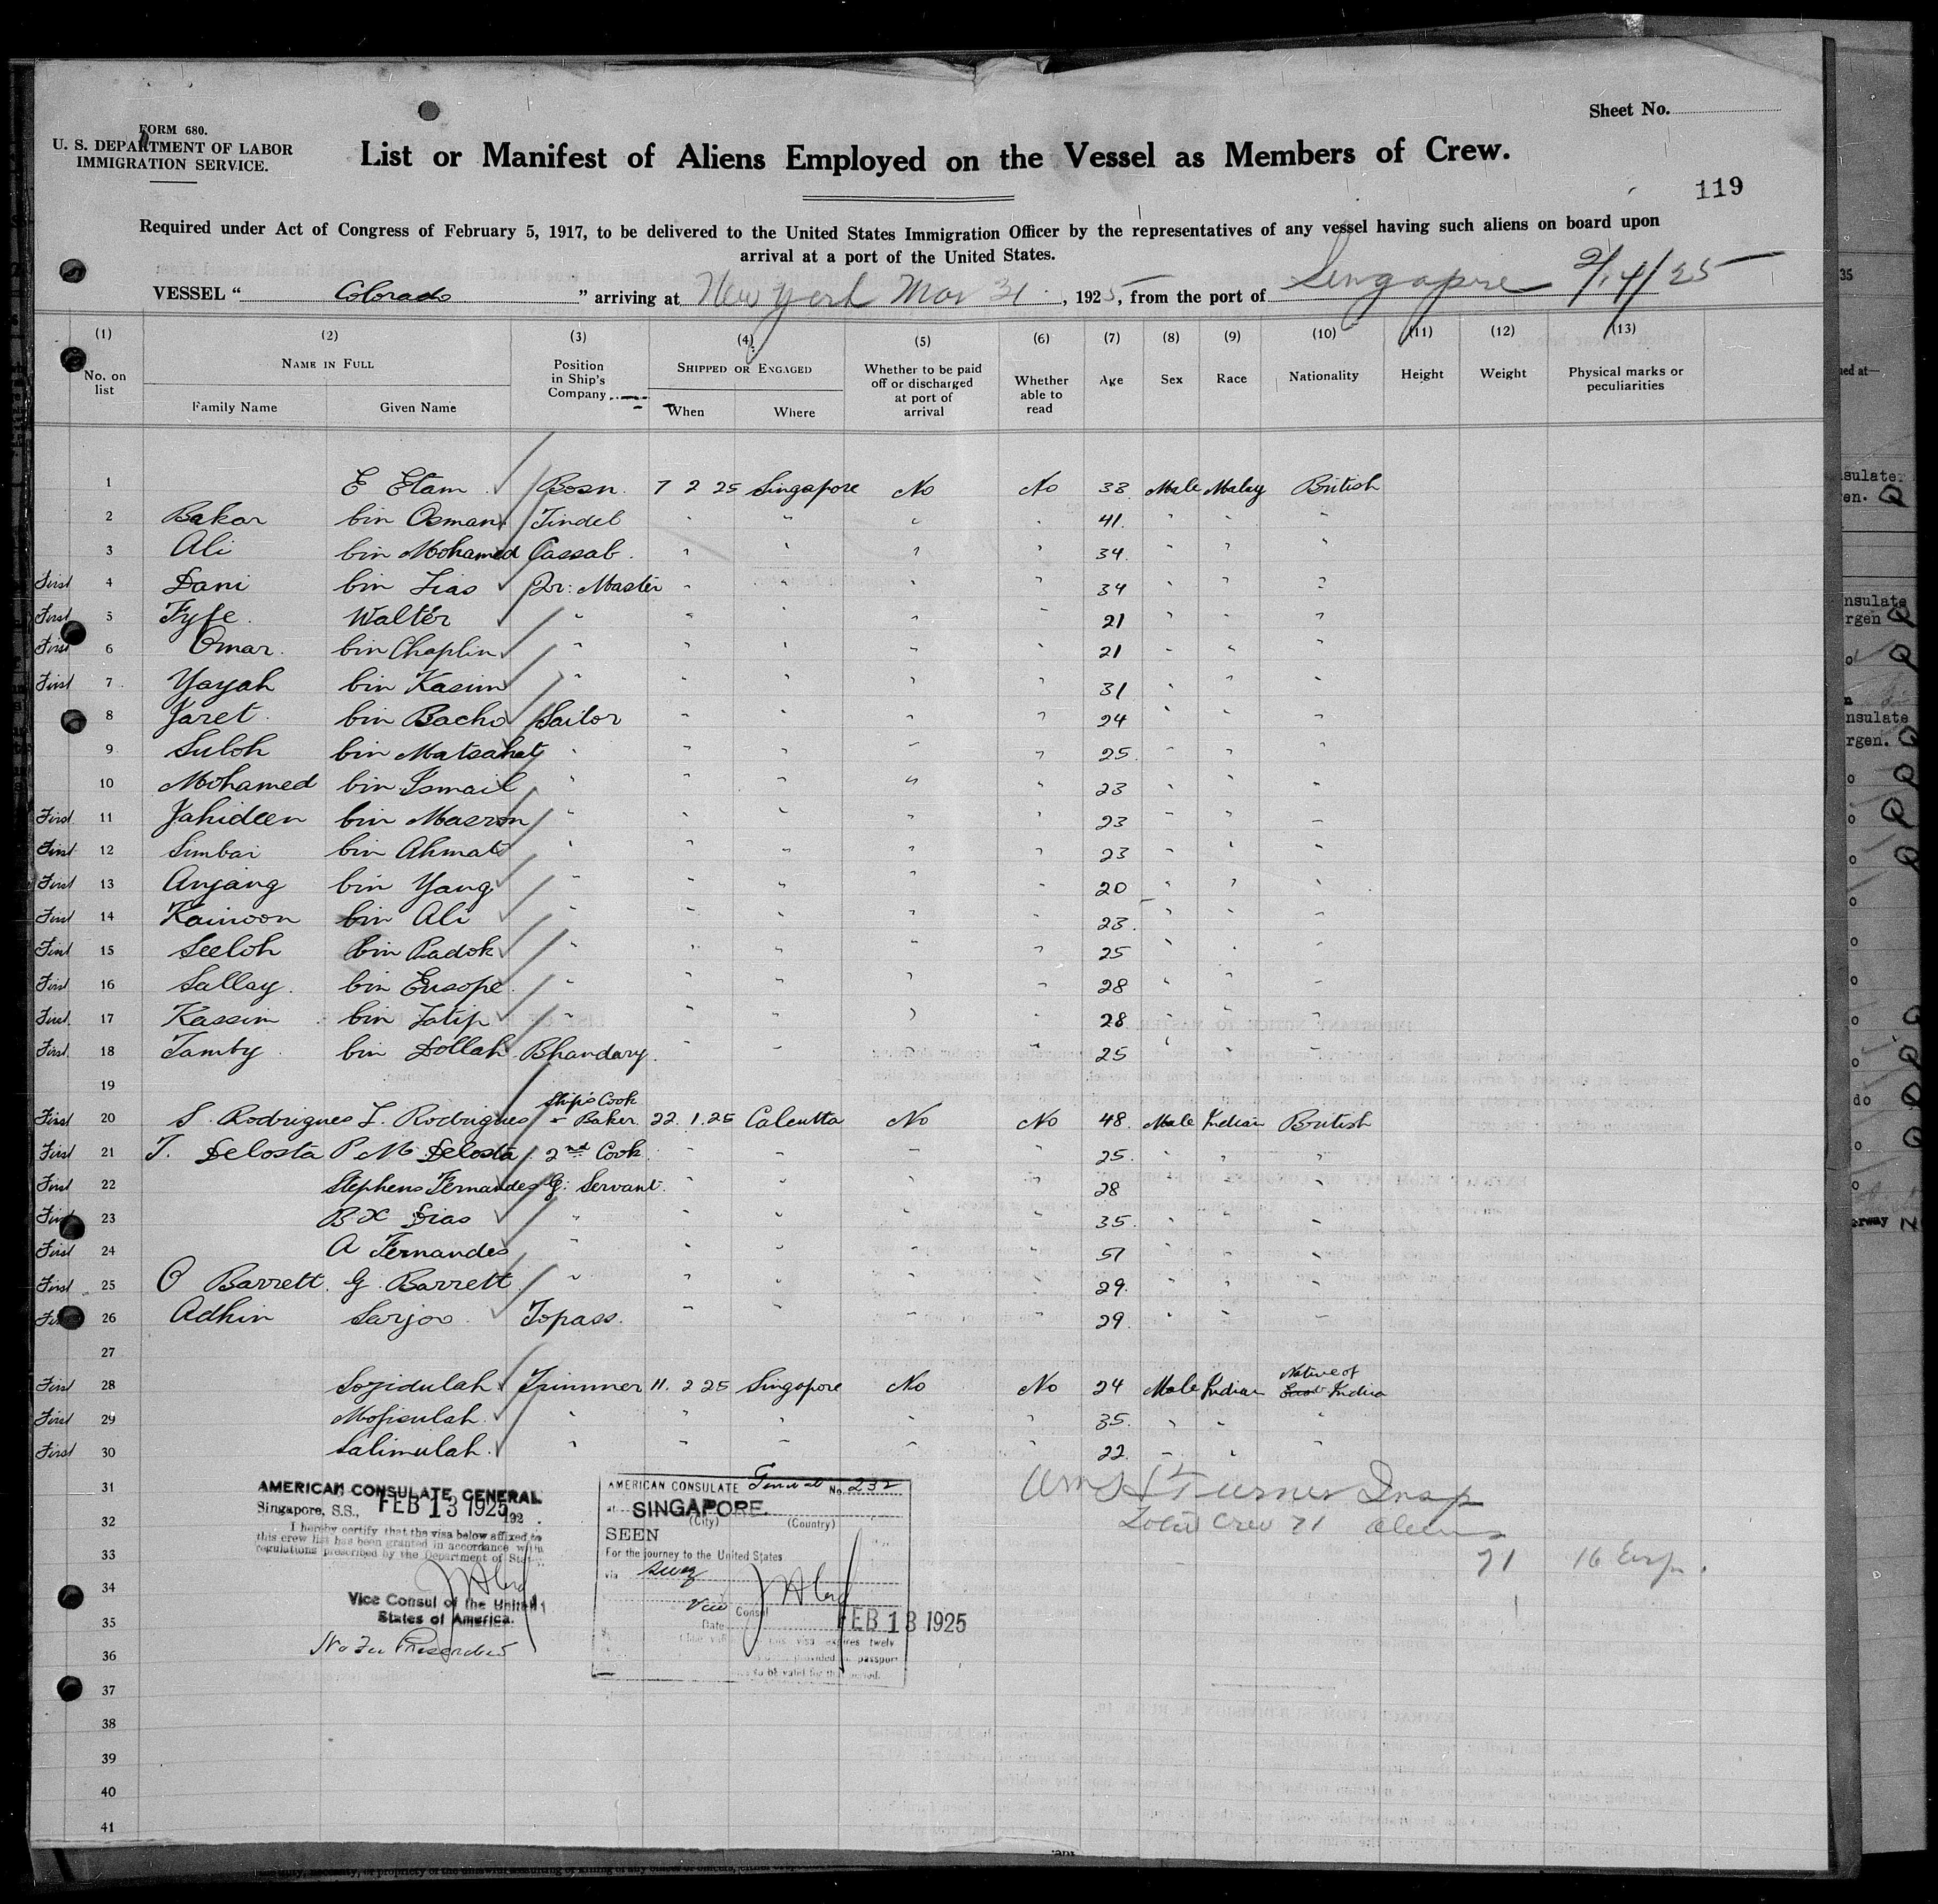 Sheet No.
FORM 680.
U. S. DEPARTMENT OF LABOR
IMMIGRATION SERVICE.
List or Manifest of Aliens Employed on the Vessel as Members of Crew.
119
Required under Act of Congress of February 5, 1917, to be delivered to the United States Immigration Officer by the representatives of any vessel having such aliens on board upon
arrival at a port of the United States.
VESSEL “ Colorado ” arriving at New York Mar 31, 1925, from the port of Singapore 2/14/25
(1) (2) (3) (4) (5) (6) (7) (8) (9) (10) (11) (12) (13)
No. on list NAME IN FULL Family Name Given Name Position in Ship's Company SHIPPED OR ENGAGED When Where Whether to be paid off or discharged at port of arrival Whether able to read Age Sex Race Nationality Height Weight Physical marks or peculiarities
1 E Etam Bosn. 7 2 25 Singapore No No 33 Male Malay British
2 Bakar bin Osman Tindel " " " " 41. " " "
3 Ali bin Mohamed Cassab. " " " " 34. " " "
First 4 Dani bin Lias Qr: Master " " " " 34 " " "
First 5 Fyfe. Walter " " " " " 21 " " "
First 6 Omar. bin Chaplin " " " " " 21 " " "
First 7 Yayah bin Kasim " " " " " 31 " " "
8 Jaret. bin Bacho Sailor " " " " 24 " " "
9 Suloh bin Matsahat " " " " " 25. " " "
10 Mohamed bin Ismail " " " " " 23 " " "
First 11 Jahideen bin Masron " " " " " 23 " " "
First 12 Simbai bin Ahmat " " " " " 23 " " "
First 13 Anjang bin Yang " " " " " 20 " " "
First 14 Kainoon bin Ali " " " " " 23. " " "
First 15 Seeloh bin Padok " " " " " 25 " " "
First 16 Sallay. bin Eusope. " " " " " 28 " " "
First 17 Kassim bin Tatip " " " " " 28 " " "
First 18 Tamby bin Dollah Bhandary. " " " " 25 " " "
19
First 20 S. Rodrigues L. Rodrigues Ship's Cook + Baker. 22. 1. 25 Calcutta No No 48. Male Indian British
First 21 T. Delosta P M Delosta 2nd Cook. " " " " 25. " " "
First 22 Stephens Fernandes G: Servant. " " " " 28 " " "
First 23 B X Dias " " " " " 35. " " "
First 24 A Fernandes " " " " " 51 " " "
First 25 O Barrett. G. Barrett " " " " " 29. " " "
First 26 Adhin Sarjoo. Topass. " " " " 29. " " "
27
First 28 Sozidulah Trimmer 11. 2 25 Singapore No No 24 Male Indian Native of India
First 29 Mofisulah. " " " " " 35. " " "
First 30 Salimulah. " " " " " 22. " " "
31
32
33
34
35
36
37
38
39
40
41
AMERICAN CONSULATE GENERAL
Singapore, S.S., FEB 13 1925 192
I hereby certify that the visa below affixed to
this crew list has been granted in accordance with
regulations prescribed by the Department of State.
Vice Consul of the United
States of America.
No Fee Prescribed
AMERICAN CONSULATE General No. 232
at SINGAPORE.
(City) (Country)
SEEN
For the journey to the United States
via Suez
Vice Consul
Date FEB 13 1925
Wm H Turner Insp
Total Crew 71 aliens
71